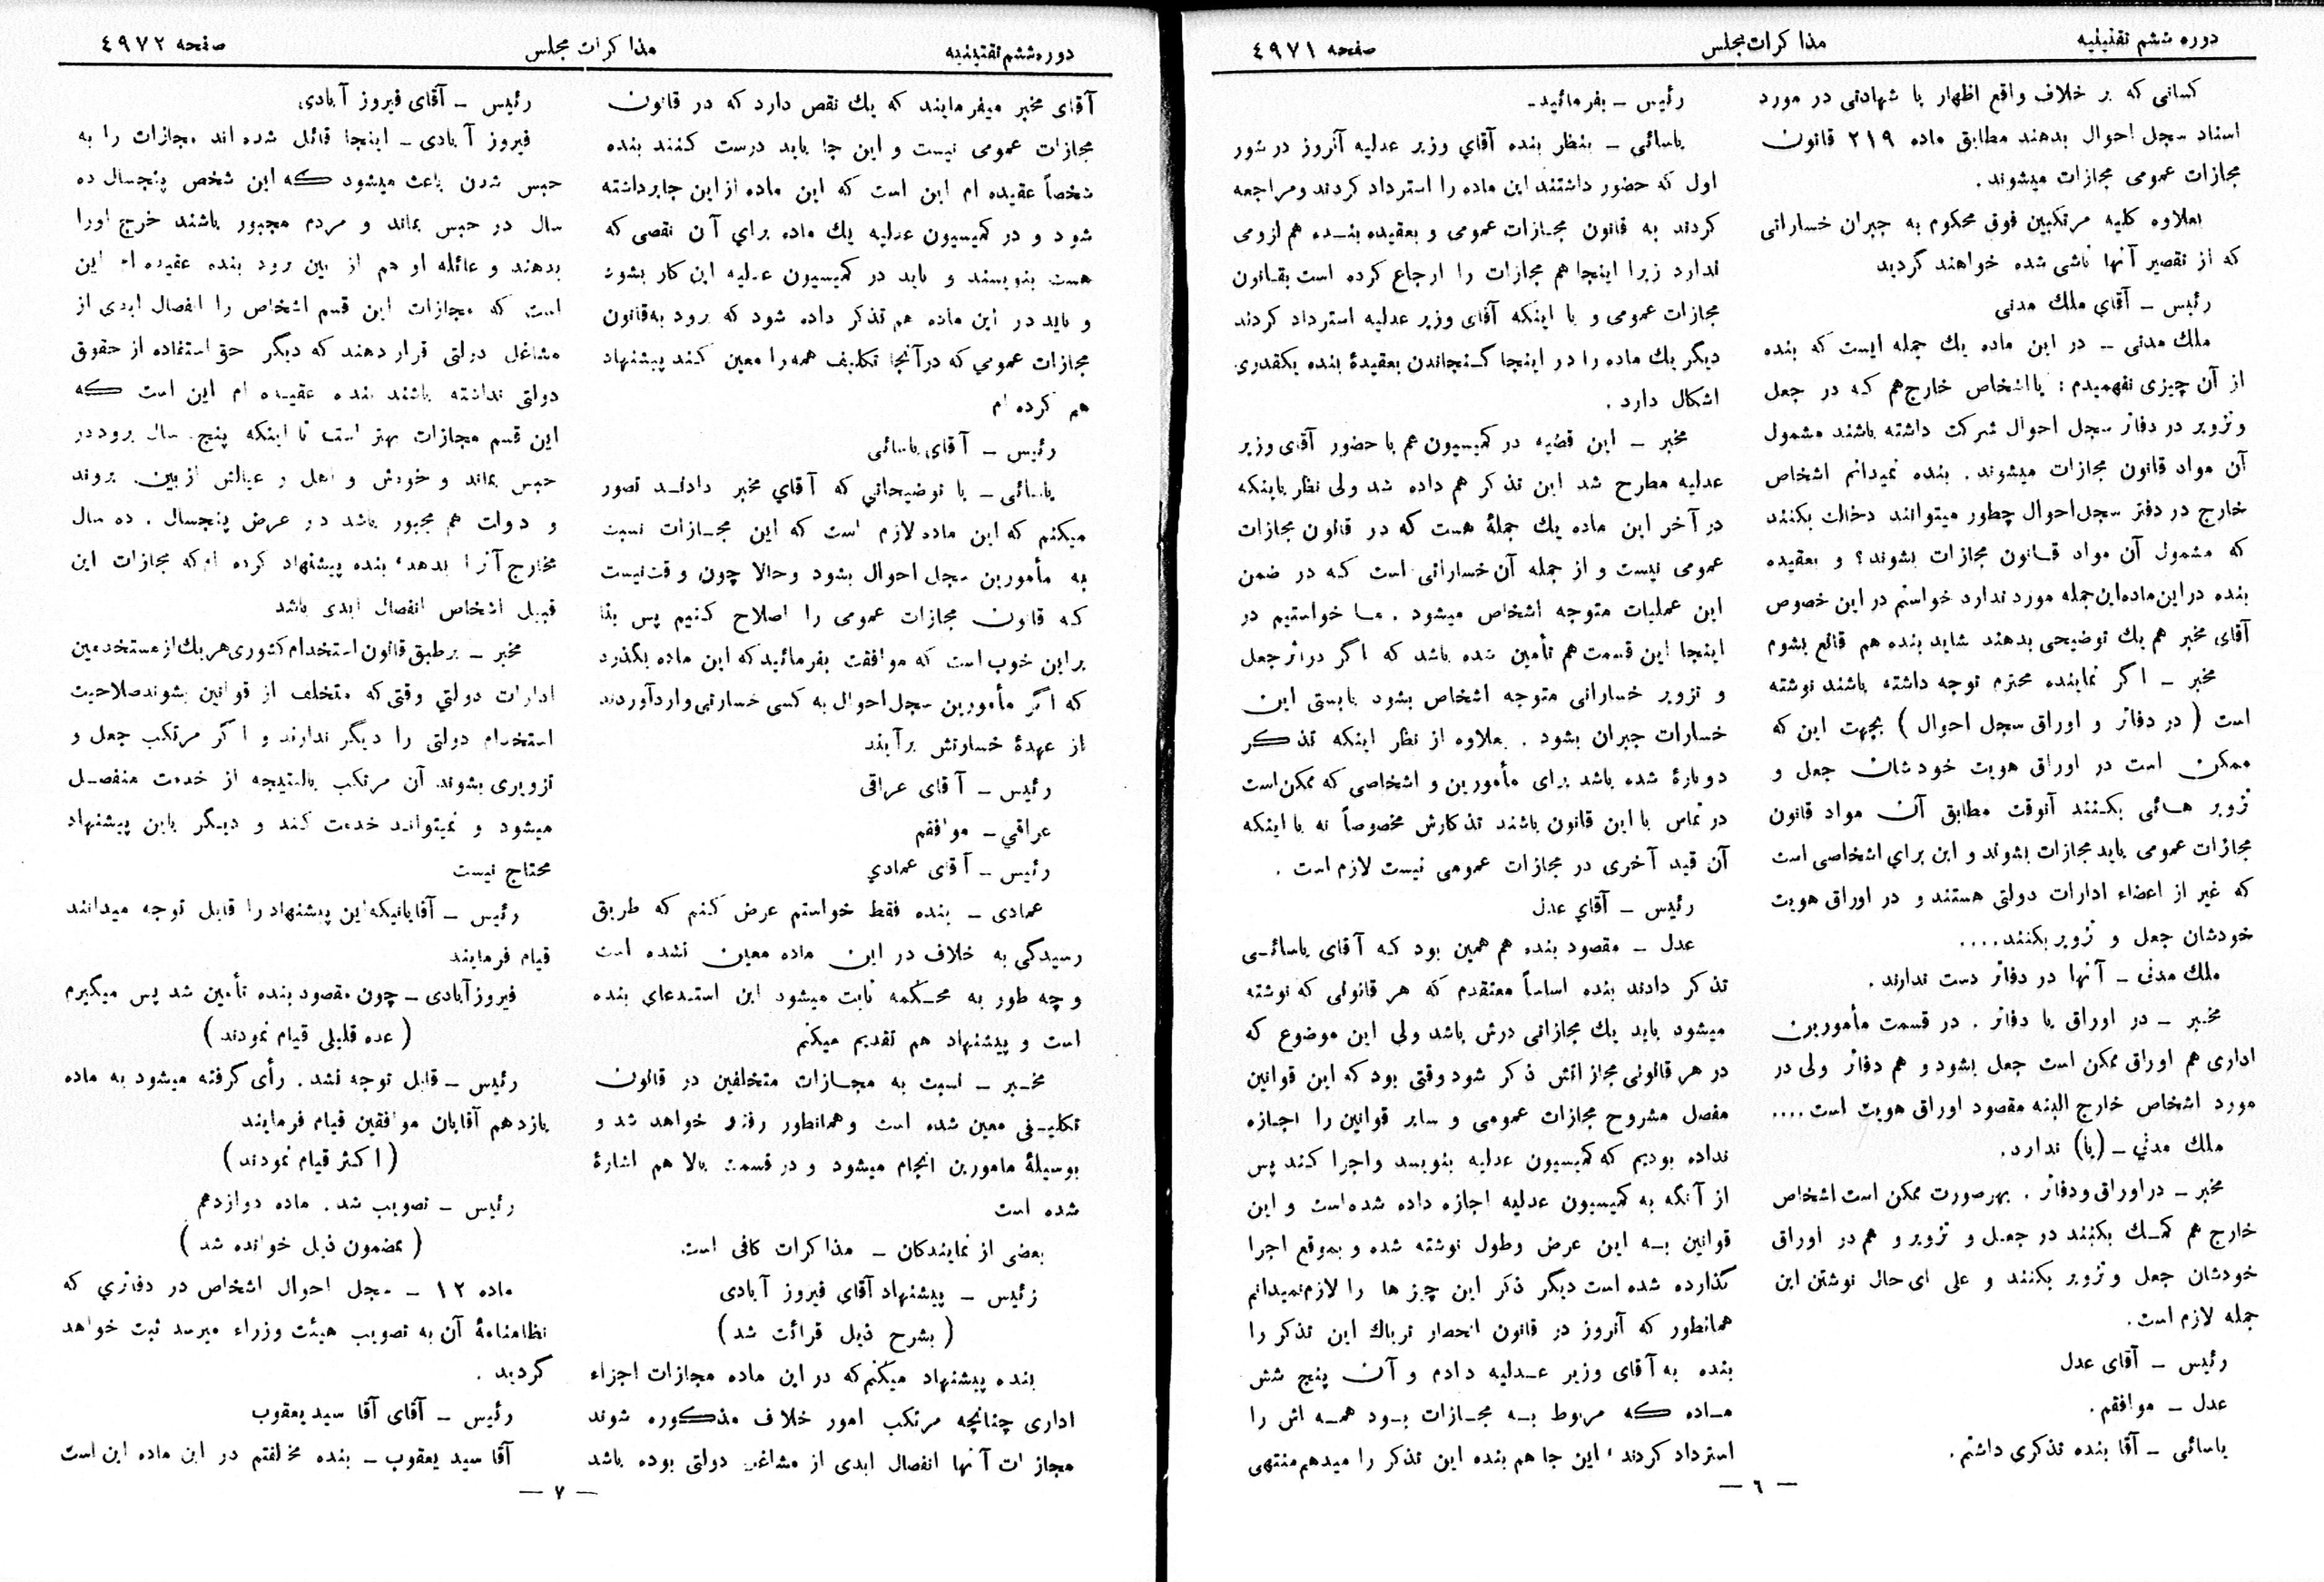 دوره ششم تقنینیه
مذاکرات مجلس
صفحه ٤٩٧١
کسانی که بر خلاف واقع اظهار یا شهادتی در مورد
اسناد سجل احوال بدهند مطابق ماده ۲۱۹ قانون
مجازات عمومی مجازات میشوند .
بعلاوه کلیه مرتکبین فوق محکوم به جبران خساراتی
که از تقصیر آنها ناشی شده خواهند گردید
رئیس ـ آقای ملك مدنی
ملك مدنی ـ در این ماده یك جمله ایست که بنده
از آن چیزی نفهمیدم : یا اشخاص خارج هم که در جعل
و تزویر در دفاتر سجل احوال شرکت داشته باشند مشمول
آن مواد قانون مجازات میشوند . بنده نمیدانم اشخاص
خارج در دفتر سجل احوال چطور میتوانند دخالت بکنند
که مشمول آن مواد قانون مجازات بشوند ؟ و بعقیده
بنده در این ماده این جمله مورد ندارد خواستم در این خصوص
آقای مخبر هم یك توضیحی بدهند شاید بنده هم قانع بشوم
مخبر ـ اگر نماینده محترم توجه داشته باشند نوشته
است ( در دفاتر و اوراق سجل احوال ) بجهت این که
ممکن است در اوراق هویت خودشان جعل و
تزویر هائی بکنند آنوقت مطابق آن مواد قانون
مجازات عمومی باید مجازات بشوند و این برای اشخاصی است
که غیر از اعضاء ادارات دولتی هستند و در اوراق هویت
خودشان جعل و تزویر بکنند ....
ملك مدنی ـ آنها در دفاتر دست ندارند .
مخبر ـ در اوراق یا دفاتر . در قسمت مأمورین
اداری هم اوراق ممکن است جعل بشود و هم دفاتر ولی در
مورد اشخاص خارج البته مقصود اوراق هویت است ....
ملك مدنی ـ (یا) ندارد .
مخبر ـ در اوراق و دفاتر . بهرصورت ممکن است اشخاص
خارج هم کمك بکنند در جعل و تزویر و هم در اوراق
خودشان جعل و تزویر بکنند و علی ای حال نوشتن این
جمله لازم است .
رئیس ـ آقای عدل
عدل ـ موافقم .
یاسائی ـ آقا بنده تذکری داشتم .
رئیس ـ بفرمائید ـ
یاسائی ـ بنظر بنده آقای وزیر عدلیه آنروز در شور
اول که حضور داشتند این ماده را استرداد کردند و مراجعه
کردند به قانون مجازات عمومی و بعقیده بنده هم لزومی
ندارد زیرا اینجا هم مجازات را ارجاع کرده است بقانون
مجازات عمومی و با اینکه آقای وزیر عدلیه استرداد کردند
دیگر یك ماده را در اینجا گنجاندن بعقیدهٔ بنده یکقدری
اشکال دارد .
مخبر ـ این قضیه در کمیسیون هم با حضور آقای وزیر
عدلیه مطرح شد این تذکر هم داده شد ولی نظر باینکه
در آخر این ماده یك جملهٔ هست که در قانون مجازات
عمومی نیست و از جمله آن خساراتی است که در ضمن
این عملیات متوجه اشخاص میشود . ما خواستیم در
اینجا این قسمت هم تأمین شده باشد که اگر در اثر جعل
و تزویر خساراتی متوجه اشخاص بشود بایستی این
خسارات جبران بشود . بعلاوه از نظر اینکه تذکر
دوبارهٔ شده باشد برای مأمورین و اشخاصی که ممکن است
در تماس با این قانون باشند تذکارش مخصوصاً نه با اینکه
آن قید آخری در مجازات عمومی نیست لازم است .
رئیس ـ آقای عدل
عدل ـ مقصود بنده هم همین بود که آقای یاسائی
تذکر دادند بنده اساساً معتقدم که هر قانونی که نوشته
میشود باید یك مجازاتی درش باشد ولی این موضوع که
در هر قانونی مجازاتش ذکر شود وقتی بود که این قوانین
مفصل مشروح مجازات عمومی و سایر قوانین را اجازه
نداده بودیم که کمیسیون عدلیه بنویسد و اجرا کند پس
از آنگه به کمیسیون عدلیه اجازه داده شده است و این
قوانین به این عرض و طول نوشته شده و بموقع اجرا
گذارده شده است دیگر ذکر این چیز ها را لازم نمیدانم
همانطور که آنروز در قانون انحصار تریاك این تذکر را
بنده به آقای وزیر عدلیه دادم و آن پنج شش
ماده که مربوط به مجازات بود همه اش را
استرداد کردند ، این جا هم بنده این تذکر را میدهم منتهی
— ٦ —
دوره ششم تقنینیه
مذاکرات مجلس
صفحه ٤٩٧٢
آقای مخبر میفرمایند که یك نقص دارد که در قانون
مجازات عمومی نیست و این جا باید درست کنند بنده
شخصاً عقیده ام این است که این ماده از این جا برداشته
شود و در کمیسیون عدلیه یك ماده برای آن نقصی که
هست بنویسند و باید در کمیسیون عدلیه این کار بشود
و باید در این ماده هم تذکر داده شود که برود به قانون
مجازات عمومی که در آنجا تکلیف همه را معین کنند پیشنهاد
هم کرده ام
رئیس ـ آقای یاسائی
یاسائی ـ با توضیحاتی که آقای مخبر دادند تصور
میکنم که این ماده لازم است که این مجازات نسبت
به مأمورین سجل احوال بشود و حالا چون وقت نیست
که قانون مجازات عمومی را اصلاح کنیم پس بنا
بر این خوب است که موافقت بفرمائید که این ماده بگذرد
که اگر مأمورین سجل احوال به کسی خسارتی وارد آوردند
از عهدهٔ خسارتش برآیند
رئیس ـ آقای عراقی
عراقی ـ موافقم
رئیس ـ آقای عمادی
عمادی ـ بنده فقط خواستم عرض کنم که طریق
رسیدگی به خلاف در این ماده معین نشده است
و چه طور به محکمه ثابت میشود این استدعای بنده
است و پیشنهاد هم تقدیم میکنم
مخبر ـ نسبت به مجازات متخلفین در قانون
تکلیفی معین شده است و همانطور رفتار خواهد شد و
بوسیلهٔ مامورین انجام میشود و در قسمت بالا هم اشارهٔ
شده است
بعضی از نمایندگان ـ مذاکرات کافی است .
رئیس ـ پیشنهاد آقای فیروز آبادی
( بشرح ذیل قرائت شد )
بنده پیشنهاد میکنم که در این ماده مجازات اجزاء
اداری چنانچه مرتکب امور خلاف مذکوره شوند
مجازات آنها انفصال ابدی از مشاغل دولتی بوده باشد
رئیس ـ آقای فیروز آبادی
فیروز آبادی ـ اینجا قائل شده اند مجازات را به
حبس شدن باعث میشود که این شخص پنجسال ده
سال در حبس بماند و مردم مجبور باشند خرج اورا
بدهند و عائله او هم از بین برود بنده عقیده ام این
است که مجازات این قسم اشخاص را انفصال ابدی از
مشاغل دولتی قرار دهند که دیگر حق استفاده از حقوق
دولتی نداشته باشند بنده عقیده ام این است که
این قسم مجازات بهتر است تا اینکه پنج سال برود در
حبس بماند و خودش و اهل و عیالش از بین بروند
و دولت هم مجبور باشد در عرض پنجسال . ده سال
مخارج آنرا بدهد ، بنده پیشنهاد کرده ام که مجازات این
قبیل اشخاص انفصال ابدی باشد
مخبر ـ بر طبق قانون استخدام کشوری هر یك از مستخدمین
ادارات دولتی وقتی که متخلف از قوانین بشوند صلاحیت
استخدام دولتی را دیگر ندارند و اگر مرتکب جعل و
تزویری بشوند آن مرتکب بالنتیجه از خدمت منفصل
میشود و نمیتواند خدمت کند و دیگر باین پیشنهاد
محتاج نیست
رئیس ـ آقایانیکه این پیشنهاد را قابل توجه میدانند
قیام فرمایند
فیروزآبادی ـ چون مقصود بنده تأمین شد پس میگیرم
( عده قلیلی قیام نمودند )
رئیس ـ قابل توجه نشد . رأی گرفته میشود به ماده
یازدهم آقایان موافقین قیام فرمایند
( اکثر قیام نمودند )
رئیس ـ تصویب شد . ماده دوازدهم
( بمضمون ذیل خوانده شد )
ماده ۱۲ ـ سجل احوال اشخاص در دفاتری که
نظامنامهٔ آن به تصویب هیئت وزراء میرسد ثبت خواهد
گردید .
رئیس ـ آقای آقا سید یعقوب
آقا سید یعقوب ـ بنده مخالفتم در این ماده این است
— ٧ —